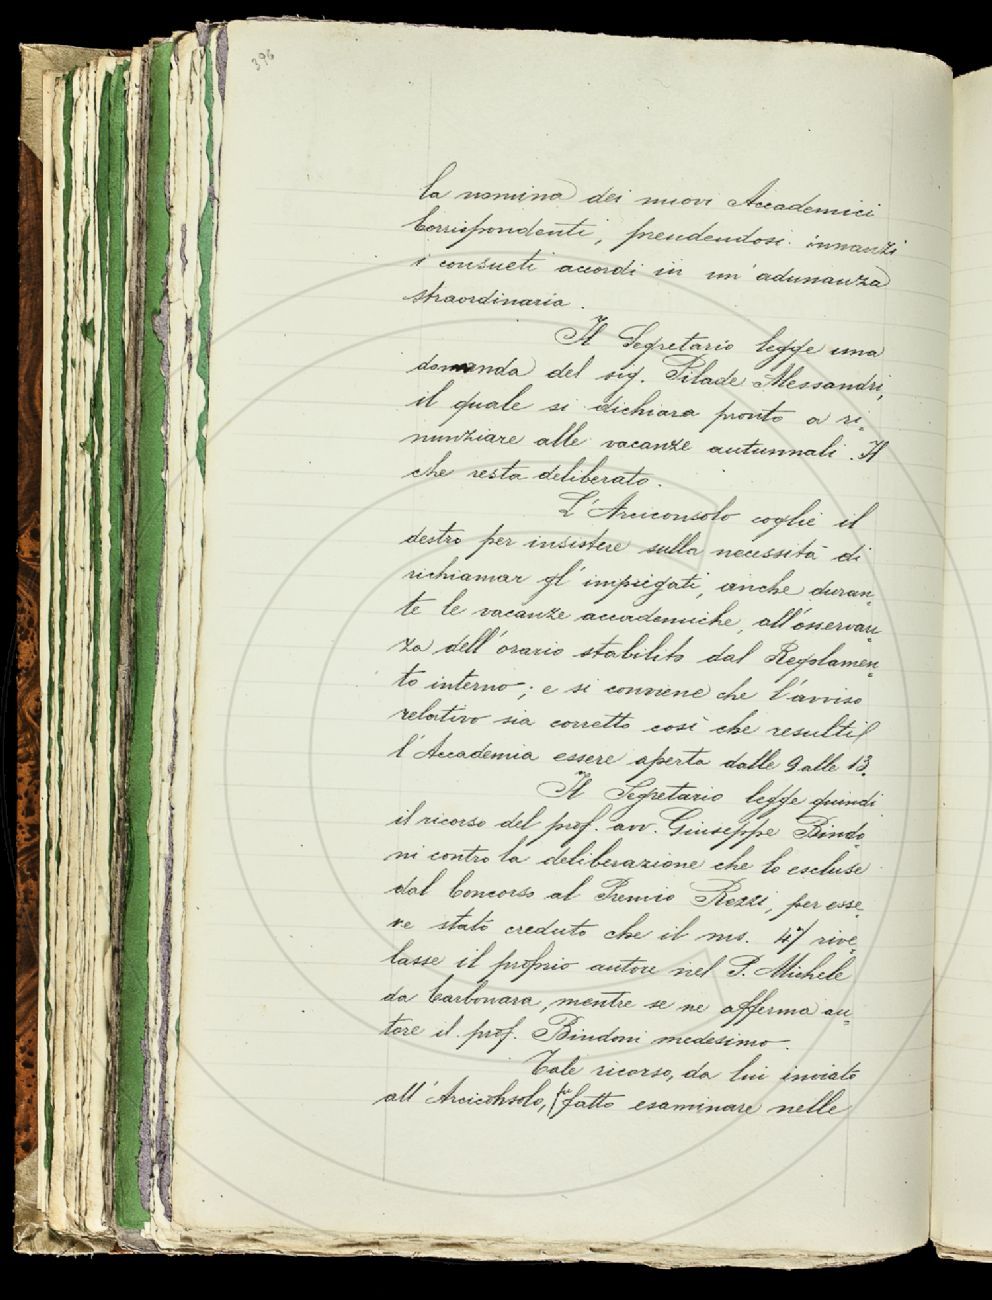 396
la nomina dei nuovi Accademici
Corrispondenti, prendendosi innanzi
i consueti accordi in un'adunanza
straordinaria.
Il Segretario legge una
domanda del sig. Pilade Alessandri,
il quale si dichiara pronto a ri-
nunziare alle vacanze autunnali. Il
che resta deliberato.
L'Arciconsolo coglie il
destro per insistere sulla necessità di
richiamar gl'impiegati, anche duran-
te le vacanze accademiche, all'osservan-
za dell'orario stabilito dal Regolamen-
to interno; e si conviene che l'avviso
relativo sia corretto così che resulti
l'Accademia essere aperta dalle 9 alle 13.
Il Segretario legge quindi
il ricorso del prof. avv. Giuseppe Bindo-
ni contro la deliberazione che lo escluse
dal Concorso al Premio Rezzi, per esse-
re stato creduto che il ms. 47 rive-
lasse il proprio autore nel P. Michele
da Carbonara, mentre se ne afferma au-
tore il prof. Bindoni medesimo.
Tale ricorso, da lui inviato
all'Arciconsolo, fu fatto esaminare nelle